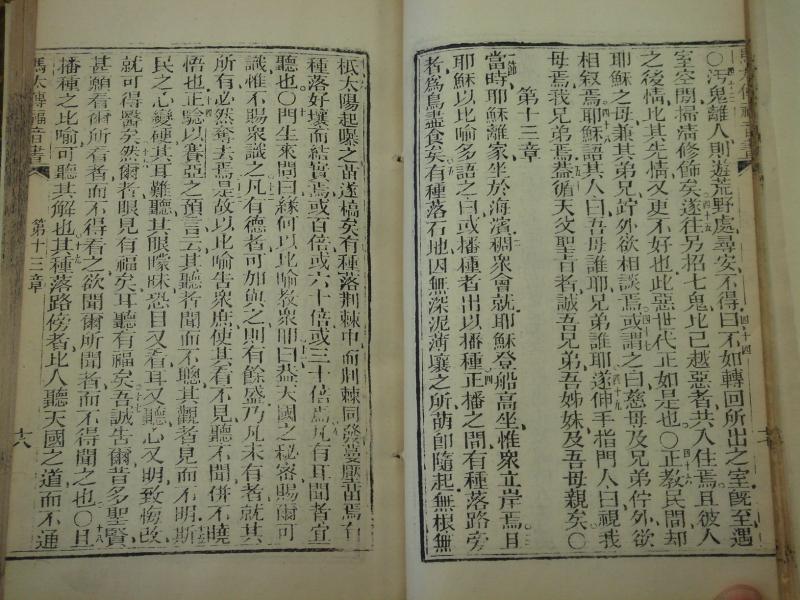 ○汚鬼離人則遊荒野處尋安不得曰不如轉回所出之室旣至遇
室空閒掃清修飾矣遂往另招七鬼比己越惡者共入住焉且彼人
之後情比其先情又更不好也此惡世代正如是也○正教民間却
耶穌之母兼其弟兄竚外欲相談焉或謂之曰慈母及兄弟佇外欲
相叙焉耶穌語其人曰吾母誰耶兄弟誰耶遂伸手指門人曰視我
母焉我兄弟焉蓋循天父聖旨者誠吾兄弟吾姊妹及吾母親矣○
第十三章
一節
當時耶穌離家坐於海濱稠衆曾就耶穌登船高坐惟衆立岸焉且
耶穌以比喻多語之曰或播種者出以播種正播之間有種落路旁
者爲鳥盡食矣有種落石地因無深泥薄壤之所萌卽隨起無根無
柢太陽起曝之苗遂槁矣有種落荆棘中而荆棘同發蔓壓苗焉有
種落好壤而結實焉或百倍或六十倍或三十倍焉凡有耳聞者宜
聽也○門生來問曰緣何以比喻教衆師曰蓋天國之秘密賜爾可
識惟不賜衆識之凡有德者可加與之則有餘盛乃凡未有者就其
所有必然奪去焉是故以比喻告衆庶使其看不見聽不聞併不曉
悟也正驗以賽亞之預言云其聽者聞而不聰其觀者見而不明斯
民之心變硬其耳難聽其眼矇昧恐目又看耳又聽心又明致悔改
就可得醫矣然爾者眼見有福矣耳聽有福矣吾誠告爾昔多聖賢
甚願看爾所看者而不得看之欲聞爾所聞者而不得聞之也○且
播種之比喻可聽其解也其種落路傍者比人聽天國之道而不通
馬太傳福音書
第十三章
十六